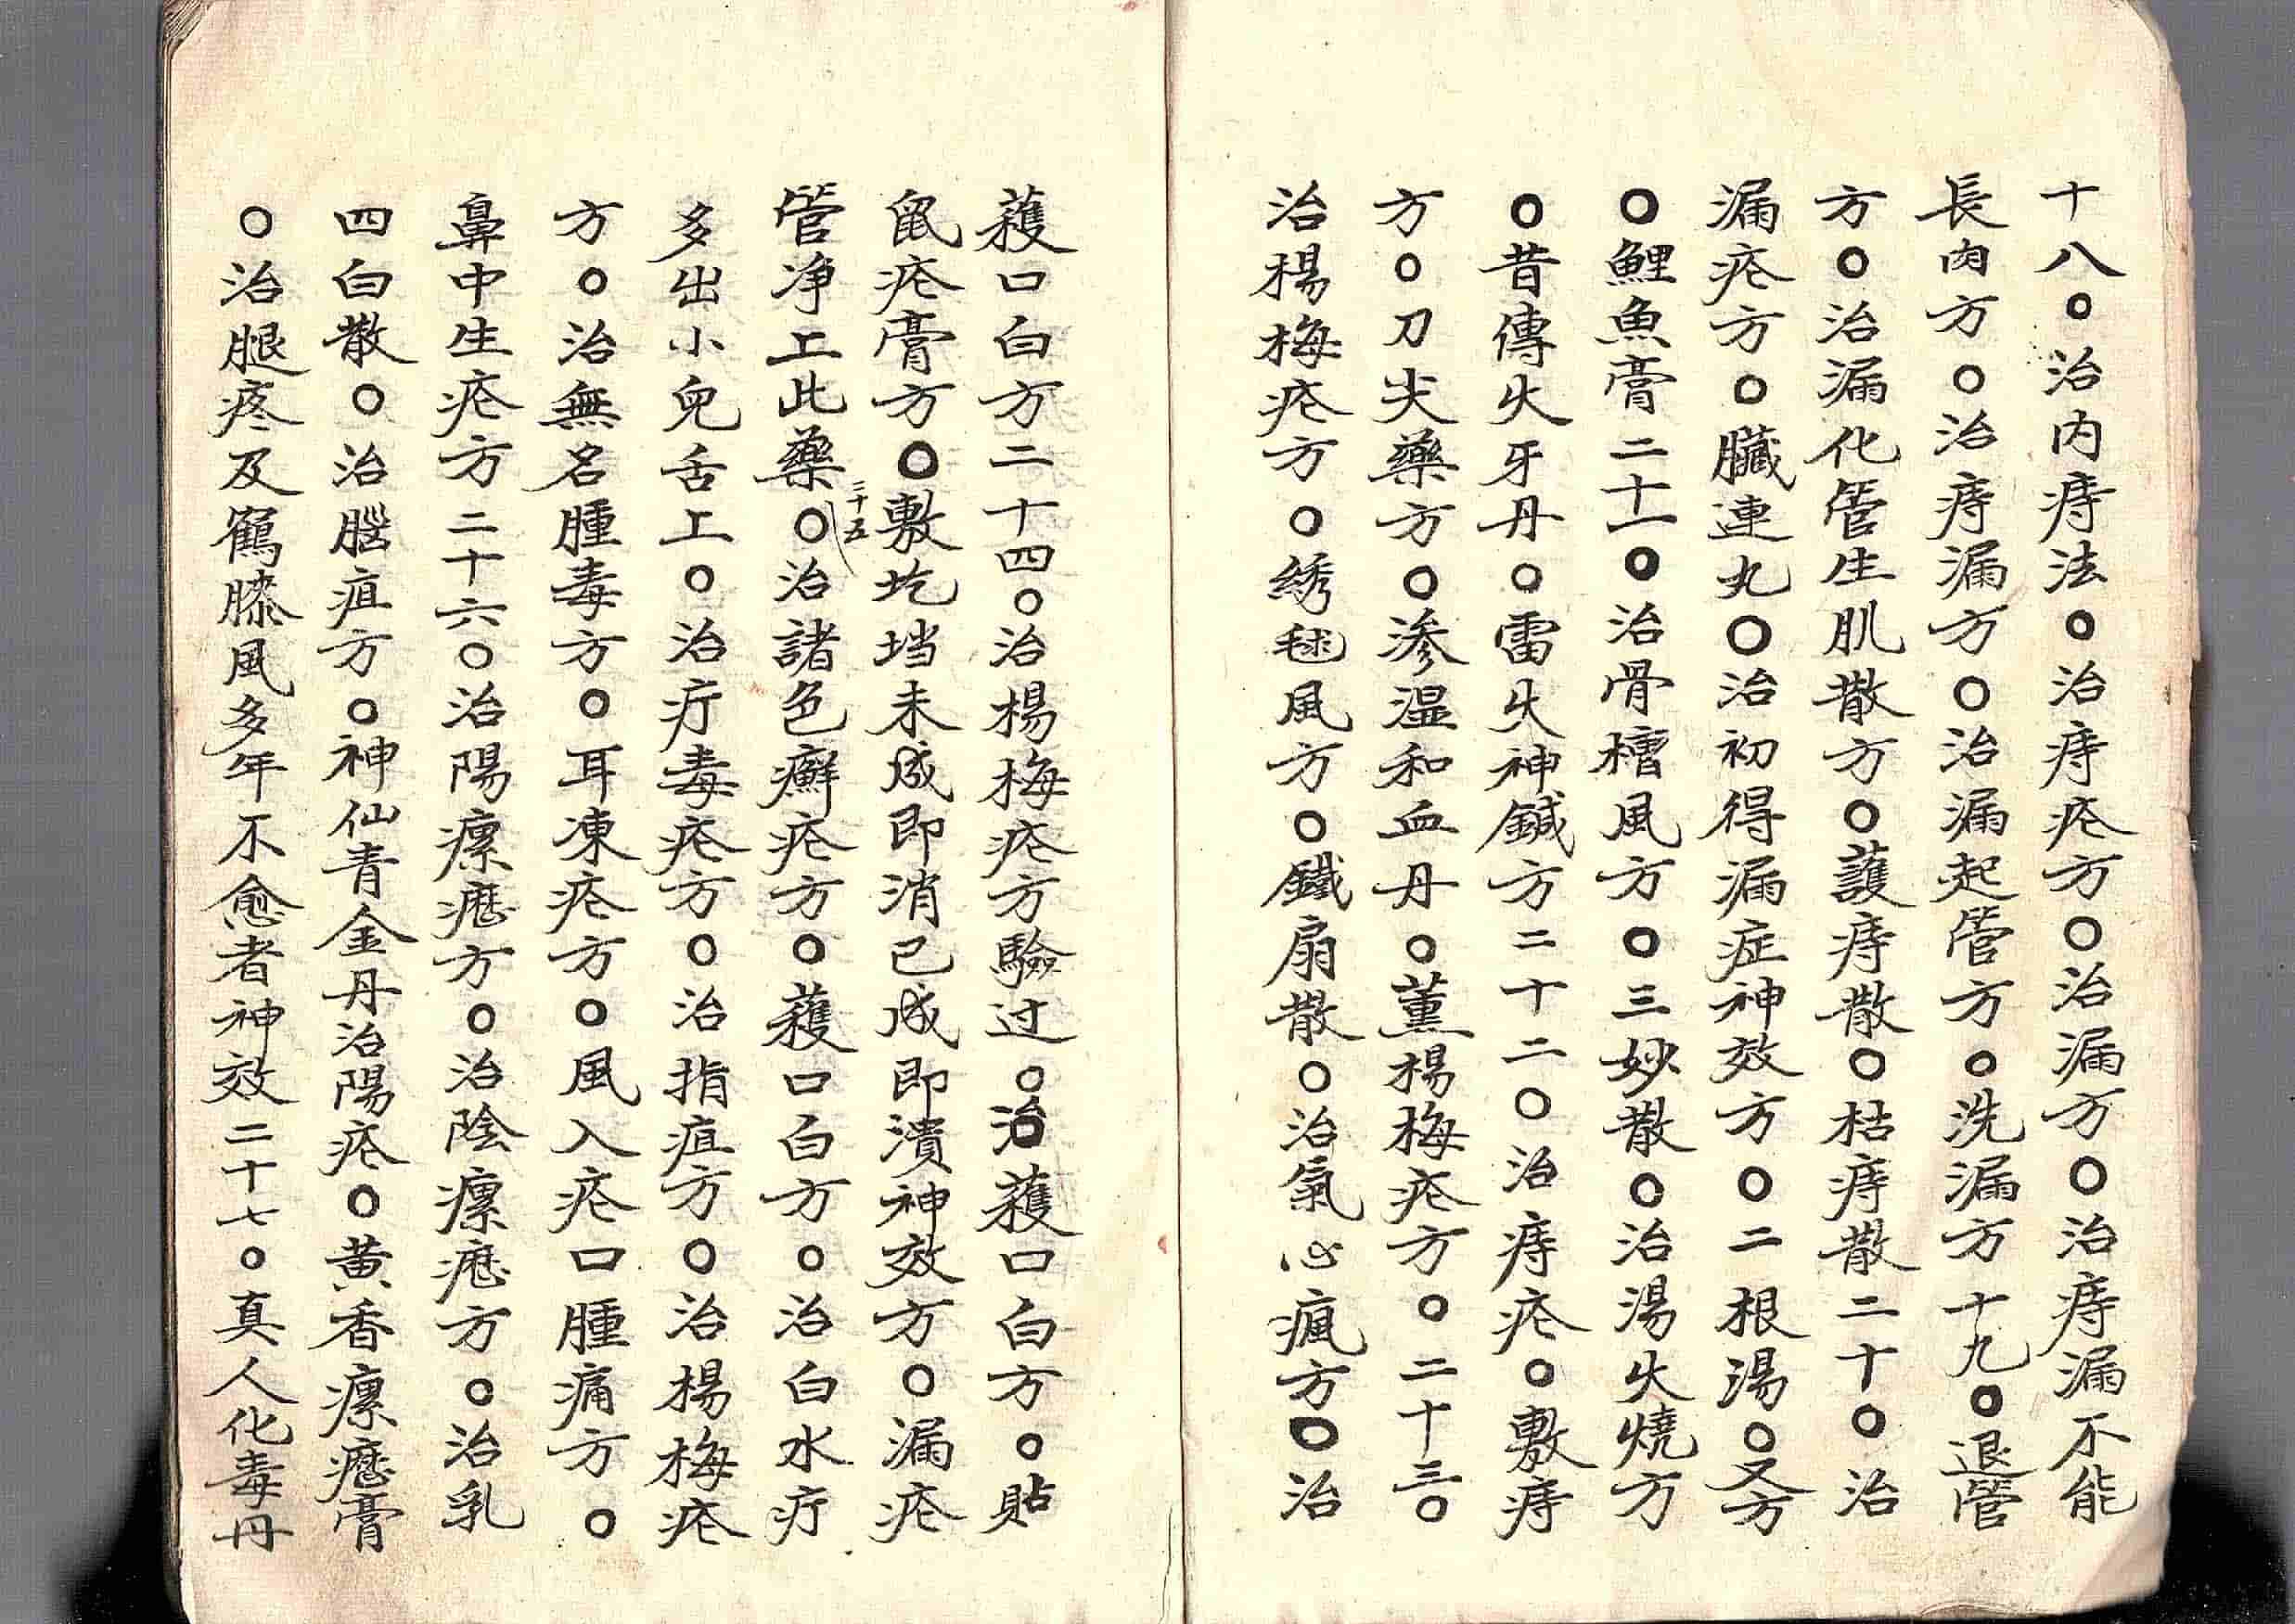 十八○治内痔法○治痔疮方○治漏方○治痔漏不能
長肉方○治痔漏方○治漏起管方○洗漏方十九○退管
方○治漏化管生肌散方○護痔散○枯痔散二十○治
漏疮方○臟連丸○治初得漏症神效方○二根湯○又方
○鯉魚膏二十一○治骨槽風方○三妙散○治湯火燒方
○昔傳火牙丹○雷火神鍼方二十二○治痔疮○敷痔
方○刀尖藥方○渗湿和血丹○薰楊梅疮方○二十三○
治楊梅疮方○绣毬風方○鐵扇散○治氣心瘋方○治
蔿口白方二十四○治楊梅疮方驗过○治蔿口白方○貼
鼠疮膏方○敷圪垱未成即消已成即潰神效方○漏疮
管净上此藥○二十五治諸色癬疮方○蔿口白方○治白水疔
多出小兒舌上○治疔毒疮方○治指疽方○治楊梅疮
方○治無名腫毒方○耳凍疮方○風入疮口腫痛方○
鼻中生疮方二十六○治陽瘰癧方○治陰瘰癧方○治乳
四白散○治腦疽方○神仙青金丹治陽疮○黄香瘰癧膏
○治腿疼及鶴膝風多年不愈者神效二十七○真人化毒丹